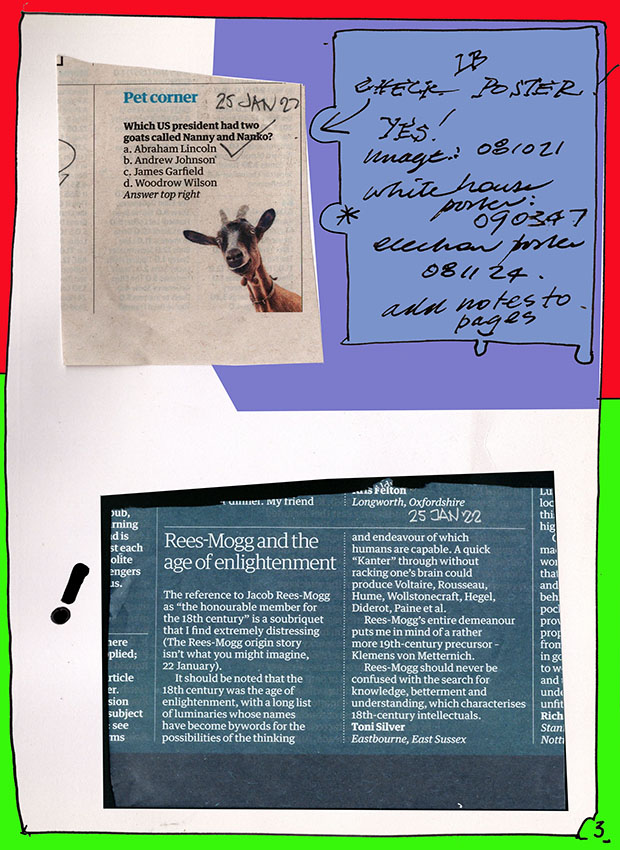 Pet corner
25 JAN 22
Which US president had two
goats called Nanny and Nanko?
a. Abraham Lincoln
b. Andrew Johnson
c. James Garfield
d. Woodrow Wilson
Answer top right
CHECK POSTER
YES!
image: 081021
white house
poster:
090347
election poster
081124.
add notes to
pages
dinner. My friend
Kris Felton
Longworth, Oxfordshire
25 JAN '22
Rees-Mogg and the
age of enlightenment
The reference to Jacob Rees-Mogg
as “the honourable member for
the 18th century” is a soubriquet
that I find extremely distressing
(The Rees-Mogg origin story
isn’t what you might imagine,
22 January).
It should be noted that the
18th century was the age of
enlightenment, with a long list
of luminaries whose names
have become bywords for the
possibilities of the thinking
and endeavour of which
humans are capable. A quick
“Kanter” through without
racking one’s brain could
produce Voltaire, Rousseau,
Hume, Wollstonecraft, Hegel,
Diderot, Paine et al.
Rees-Mogg’s entire demeanour
puts me in mind of a rather
more 19th-century precursor –
Klemens von Metternich.
Rees-Mogg should never be
confused with the search for
knowledge, betterment and
understanding, which characterises
18th-century intellectuals.
Toni Silver
Eastbourne, East Sussex
!
3